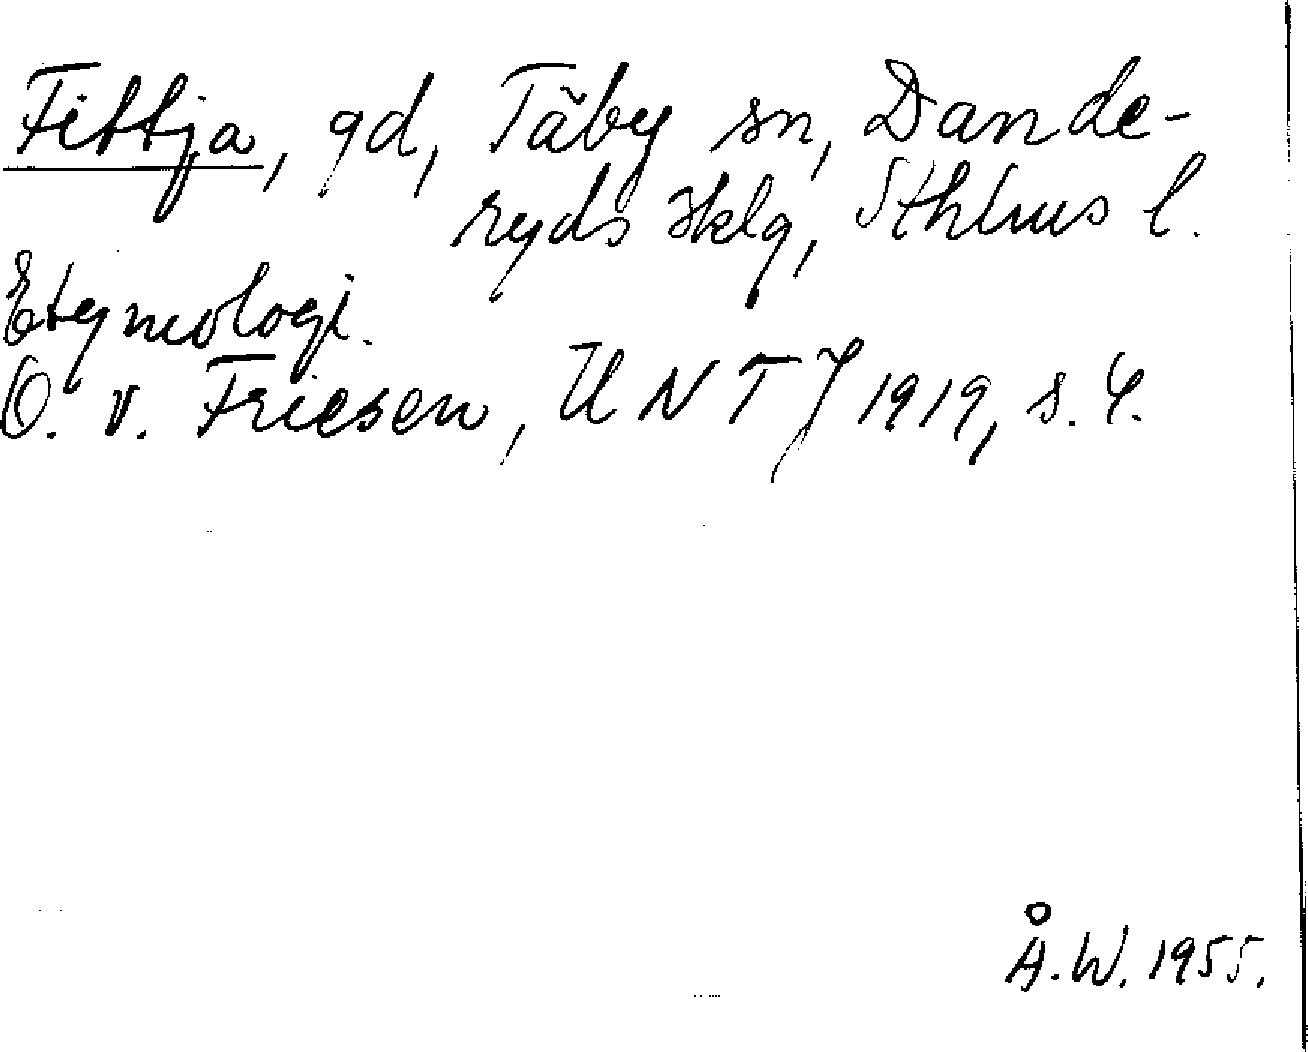 Fittja, gd, Täby sn, Dande-
ryds skg, Sthlms l.
Etymologi.
O. v. Friesen, UNTJ 1919, s. 4.
Å.W. 1955.